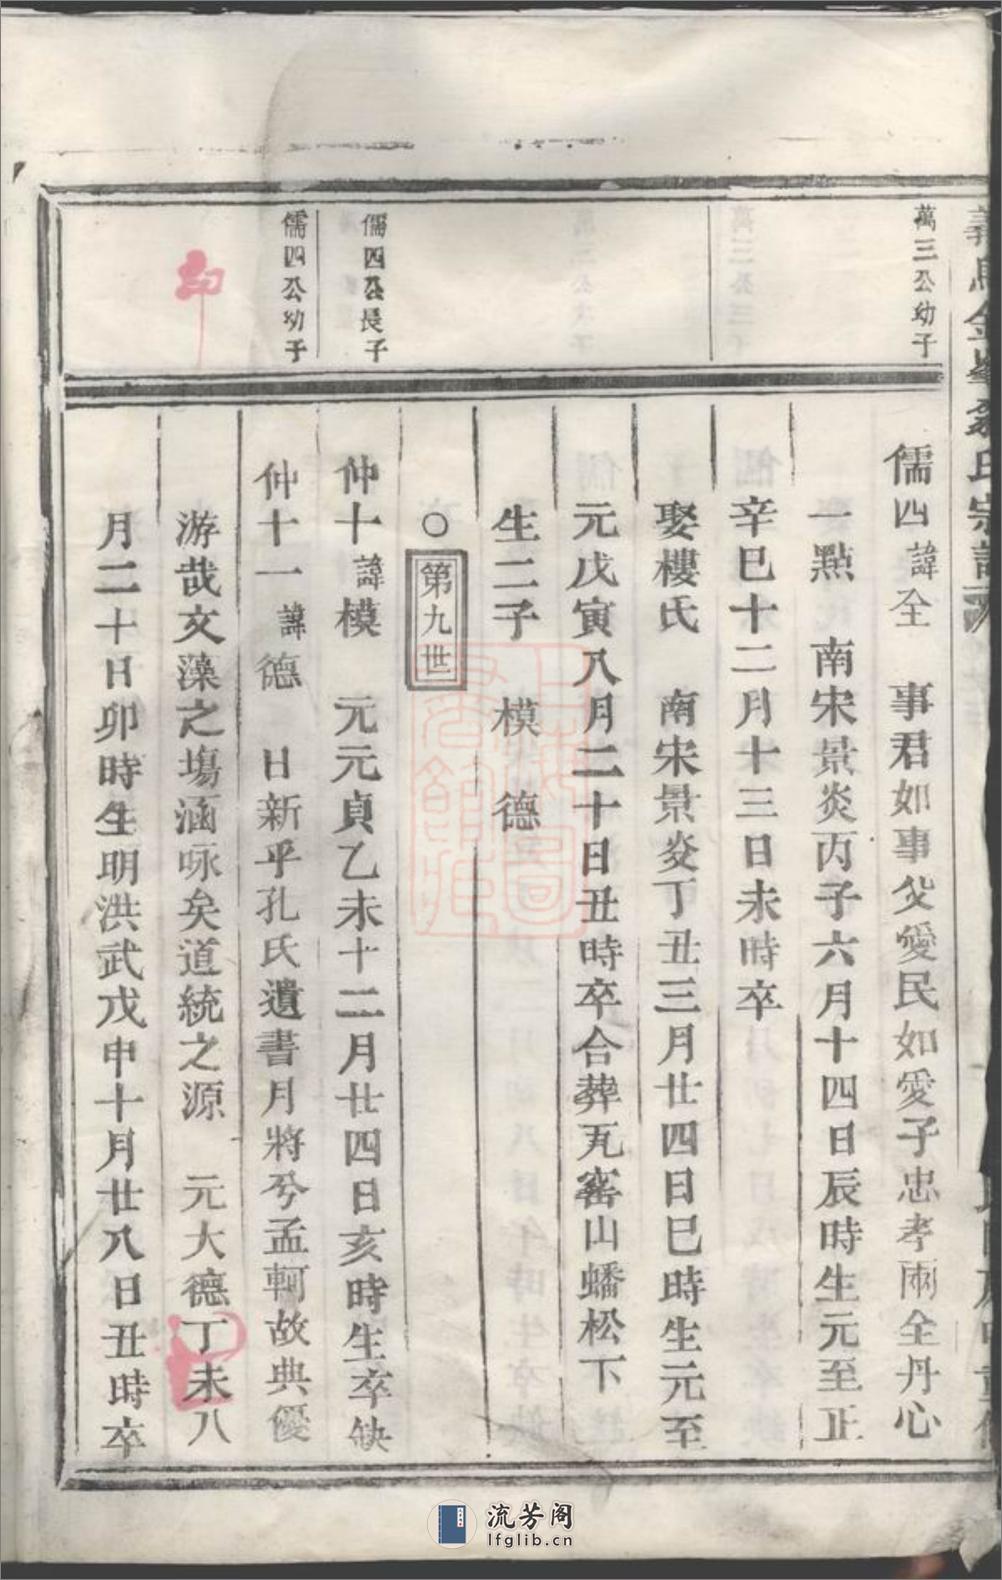 萬三公幼子
儒四諱全　事君如事父愛民如愛子忠孝兩全丹心
一點　南宋景炎丙子六月十四日辰時生元至正
辛巳十二月十三日未時卒
娶樓氏　南宋景炎丁丑三月廿四日巳時生元至
元戊寅八月二十日丑時卒合葬瓦窰山蟠松下
生二子　模　德
○第九世
儒四公長子
仲十諱模　元元貞乙未十二月廿四日亥時生卒缺
儒四公幼子
仲十一諱德　日新乎孔氏遺書月將兮孟軻故典優
游哉文藻之塲涵咏矣道統之源　元大德丁未八
月二十日卯時生明洪武戊申十月廿八日丑時卒
流芳阁
lfglib.cn